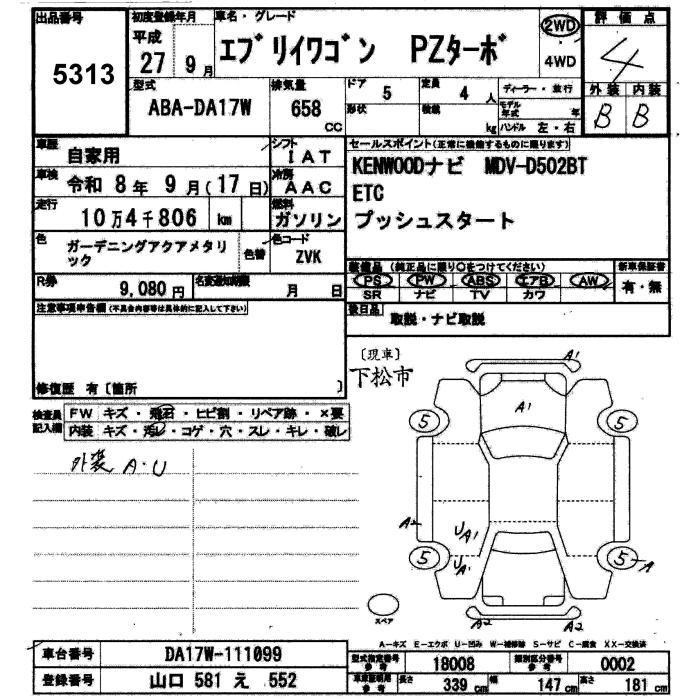 出品番号
5313
初度登録年月
平成
27 9月
車名・グレード
エブリイワゴン PZターボ
2WD
4WD
評価点
4
外装 内装
B B
型式
ABA-DA17W
排気量
658
CC
ドア 5
定員 4 人
形状
積載 kg
ディーラー・並行
モデル年式 年
ハンドル 左・右
車歴 自家用
シフト IAT
車検 令和 8年 9月(17日)
冷房 AAC
走行 10万4千806 km
燃料 ガソリン
色 ガーデニングアクアメタリック
色替
色コード ZVK
R券 9,080円
名変通知期限 月 日
セールスポイント(正常に機能するものに限ります)
KENWOODナビ MDV-D502BT
ETC
プッシュスタート
装備品 (純正品に限り○をつけてください)
PS PW ABS エアB AW
SR ナビ TV カワ
新車保証書
有・無
後日品 取説・ナビ取説
注意事項申告欄(不具合内容等は具体的に記入して下さい)
修復歴 有〔箇所 〕
検査員記入欄
FW キズ・飛石・ヒビ割・リペア跡・×要
内装 キズ・汚レ・コゲ・穴・スレ・キレ・破レ
外装 A・U
〔現車〕
下松市
A1
A1
5
5
A2
UA1
UA1
5
5
A
A2
A2
スペア
A-キズ E-エクボ U-凹み W-補修跡 S-サビ C-腐食 XX-交換済
車台番号 DA17W-111099
登録番号 山口 581 え 552
型式指定番号 参考 18008
類別区分番号 参考 0002
車車証明用 参考
長さ 339 cm 幅 147 cm 高さ 181 cm